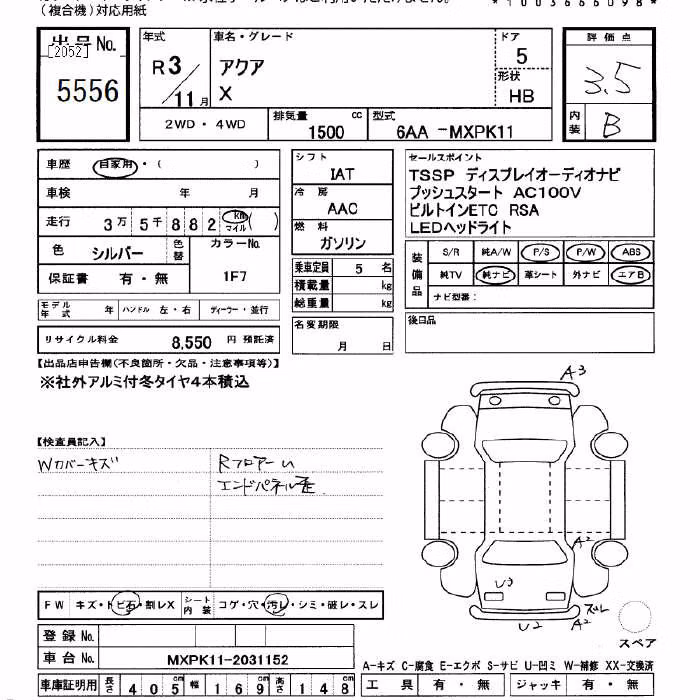 (複合機)対応用紙
*1003666098*
出品No.
[2052]
5556
年式
R3/11月
車名・グレード
アクア
X
ドア
5
形状
HB
評価点
3.5
内装
B
2WD・4WD
排気量 1500 cc
型式 6AA -MXPK11
車歴 自家用・( )
車検 年 月
走行 3万5千882 km マイル ( )
色 シルバー 色替
カラーNo. 1F7
保証書 有・無
モデル年式 年 ハンドル 左・右 ディーラー・並行
リサイクル料金 8,550 円 預託済
シフト
IAT
冷房
AAC
燃料
ガソリン
乗車定員 5 名
積載量 kg
総重量 kg
名変期限
月 日
セールスポイント
TSSP ディスプレイオーディオナビ
プッシュスタート AC100V
ビルトインETC RSA
LEDヘッドライト
装備品
S/R 純A/W P/S P/W ABS
純TV 純ナビ 革シート 外ナビ エアB
ナビ型番:
後日品
【出品店申告欄(不良箇所・欠品・注意事項等)】
※社外アルミ付冬タイヤ4本積込
【検査員記入】
Wカバーキズ
RフロアーU
エンドパネル歪
A3
A2
U3
U2
A2
ズレ
スペア
FW キズ・トビ石・割レX
シート内装 コゲ・穴・汚レ・シミ・破レ・スレ
登録No.
車台No. MXPK11-2031152
車庫証明用 長さ 405cm 幅 169cm 高さ 148cm
A-キズ C-腐食 E-エクボ S-サビ U-凹ミ W-補修 XX-交換済
工具 有・無 ジャッキ 有・無